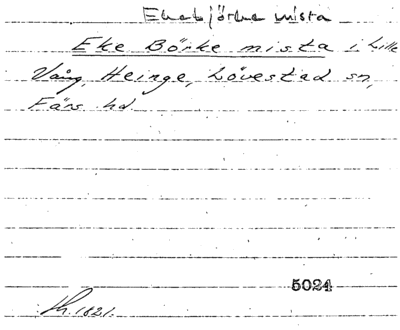 Ekebjörke mista
Eke Börke mista i Lille
Vång, Heinge, Lövestad sn,
Färs hd
5024
Lh. 1821.